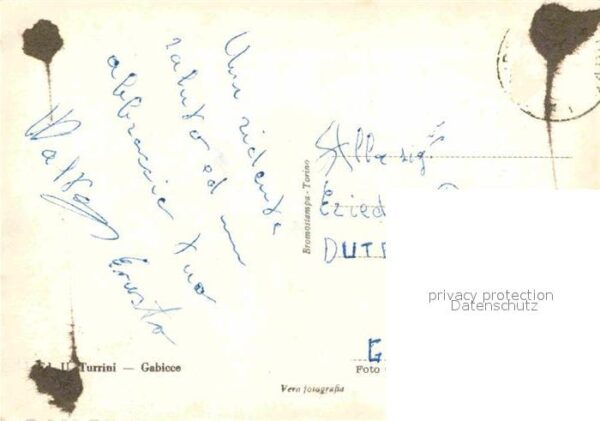 Un ridente
saluto ed un
abbraccio tuo
Ernesto
Alla sig.
DUT
G
Bromostampa - Torino
Ed. U. Turrini — Gabicce
Foto
Vera fotografia
privacy protection
Datenschutz